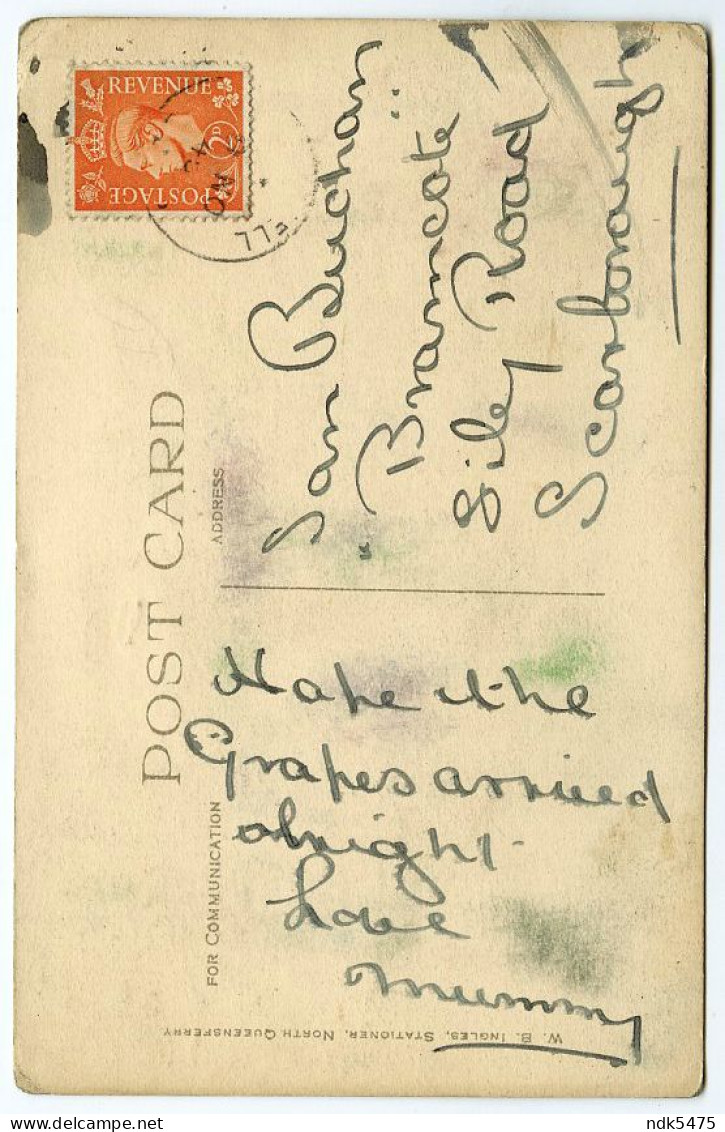 POST CARD
FOR COMMUNICATION
ADDRESS
Hope the
Grapes arrived
alright.
Love
Mummy
Sam Buchan
"Bramcote"
Filey Road
Scarborough
W. B. INGLES, STATIONER, NORTH QUEENSFERRY
REVENUE
2D
POSTAGE
ndk5475